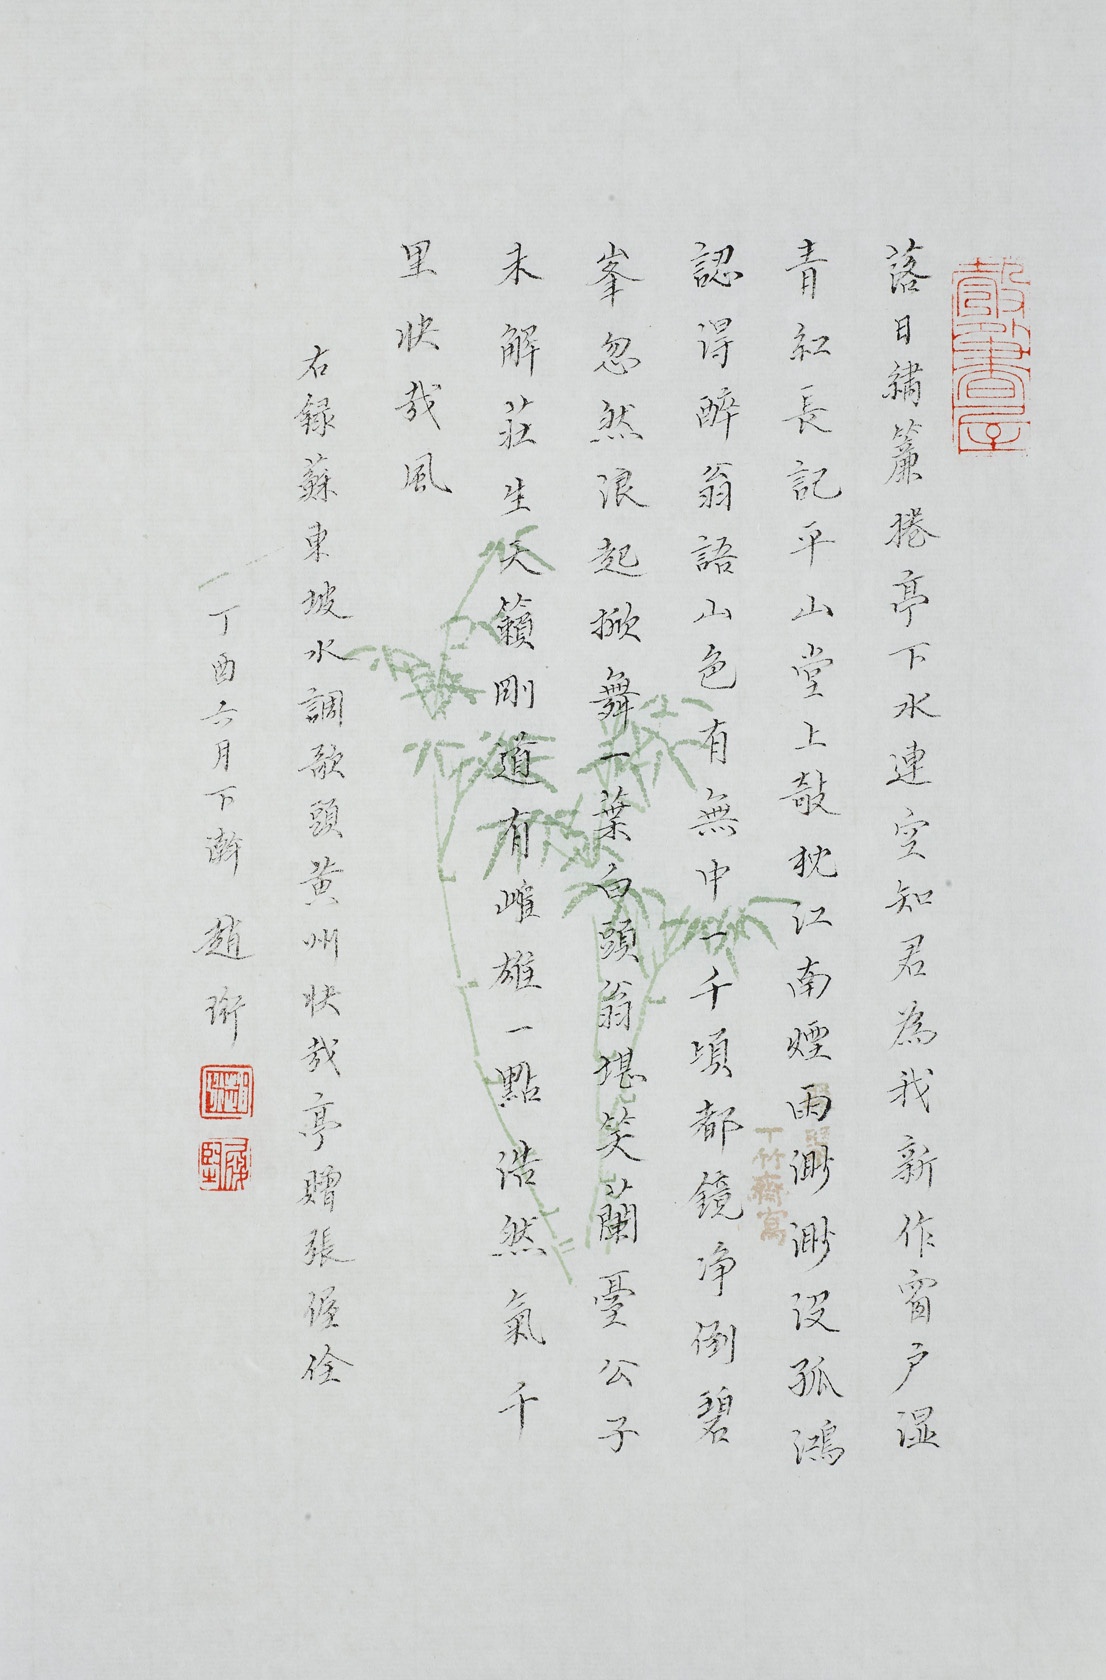 彀外書屋
落日繡簾捲亭下水連空知君為我新作窗户溼
青紅長記平山堂上敧枕江南煙雨渺渺没孤鴻
認得醉翁語山色有無中一千頃都鏡净倒碧
峯忽然浪起掀舞一葉白頭翁堪笑蘭臺公子
未解莊生天籟剛道有雌雄一點浩然氣千
里快哉風
右録蘇東坡水調歌頭黄州快哉亭贈張偓佺
丁酉六月下澣 趙珩
趙珩
十竹齋寫